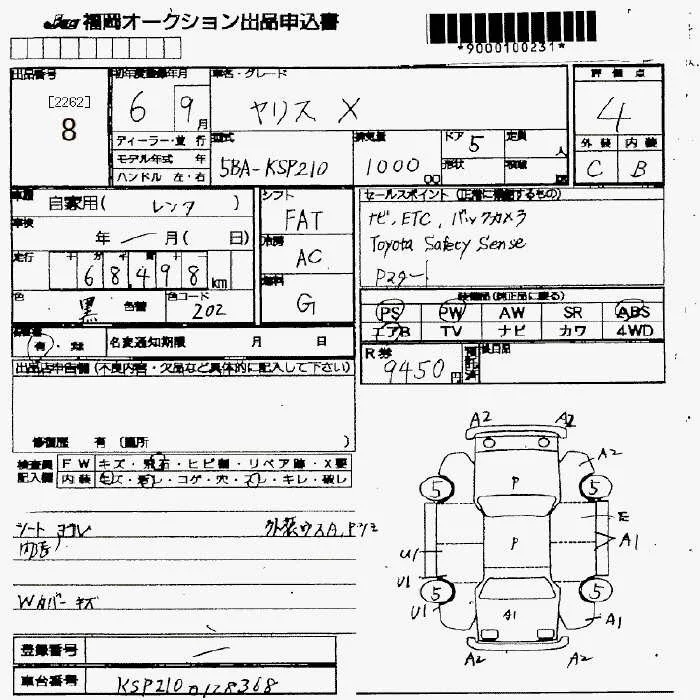 福岡オークション出品申込書
*9000100231*
出品番号
[2262]
8
初年度登録年月
6 9月
車名・グレード
ヤリス X
評価点
4
外装 内装
C B
ディーラー・並行
モデル年式 年
ハンドル 左・右
型式
5BA-KSP210
排気量
1000 cc
ドア 5
形状
定員 人
積載
車歴
自家用( レンタ )
車検
年 月( 日)
走行
68498 km
色
黒
色替
色コード
202
シフト
FAT
冷房
AC
燃料
G
セールスポイント (正常に機能するもの)
ナビ, ETC, バックカメラ
Toyota Safety Sense
装備品(純正品に限る)
PS PW AW SR ABS
エアB TV ナビ カワ 4WD
有・無
名変通知期限 月 日
R券
9450円
後日品
出品店申告欄 (不良内容・欠品など具体的に記入して下さい)
修復歴 有 (箇所 )
検査員
記入欄
FW キズ・飛石・ヒビ割・リペア跡・X要
内装 キズ・汚レ・コゲ・穴・スレ・キレ・破レ
シート ヨゴレ
Wカバー キズ
A2 A2
A2
5 P 5
E
U1 P A1
U1
5 5
U1 A1 A1
A2 A2
登録番号
車台番号
KSP210-0128368